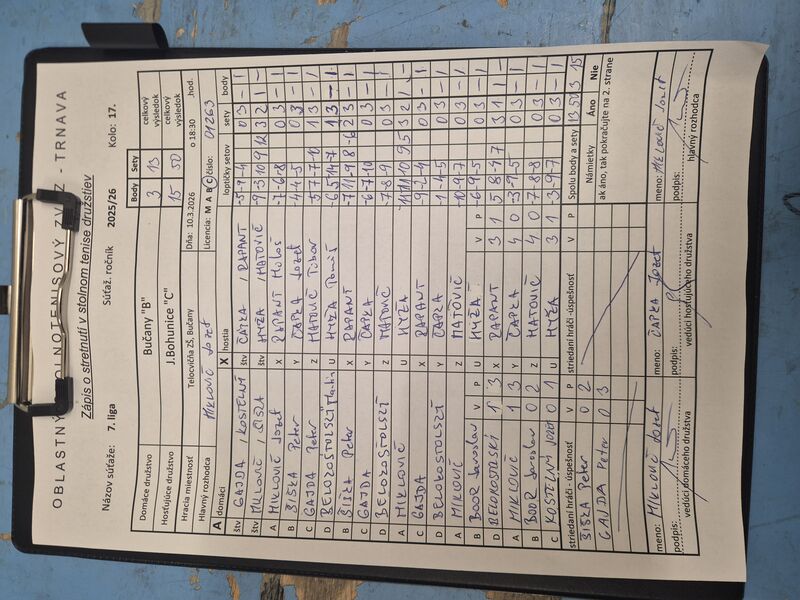 OBLASTNÝ STOLNOTENISOVÝ ZVÄZ - TRNAVA
Zápis o stretnutí v stolnom tenise družstiev
Názov súťaže: 7. liga Súťaž. ročník 2025/26 Kolo: 17.
Body Sety
Domáce družstvo Bučany "B" 3 13 celkový výsledok
Hosťujúce družstvo J.Bohunice "C" 15 50 celkový výsledok
Hracia miestnosť Telocvičňa ZŠ, Bučany Dňa: 10.3.2026 o 18:30 .hod.
Hlavný rozhodca MIKLOVIČ Jozef Licencia: M A B C číslo: 01263
A domáci X hostia loptičky setov sety body
štv GAJDA, KOSTELNÝ štv ČAPKA, RAPANT -5 -9 -4 0 3 - 1
štv MIKLOVIČ, štv HYŽA, MATOVIČ 3 2 1 -
A MIKLOVIČ Jozef X RAPANT Miloš -7 -6 -8 0 3 - 1
B ŠIŠKA Peter Y ČAPKA Jozef -4 -4 -5 0 3 - 1
C GAJDA Peter Z MATOVIČ Tibor 1 3 - 1
D U HYŽA 1 3 - 1
B ŠIŠKA Peter X RAPANT 2 3 - 1
C GAJDA Y ČAPKA -6 -7 -10 0 3 - 1
D Z MATOVIČ -7 -8 -9 0 3 - 1
A MIKLOVIČ U HYŽA 3 2 1 -
C GAJDA X RAPANT -9 -2 -4 0 3 - 1
D Y ČAPKA -1 -4 -5 0 3 - 1
A MIKLOVIČ Z MATOVIČ -10 -9 -7 0 3 - 1
B BOOR Jaroslav V P U HYŽA V P -6 -9 -5 0 3 - 1
D 1 3 X RAPANT 3 1 3 1 1 -
A MIKLOVIČ 1 3 Y ČAPKA 4 0 -3 -9 -5 0 3 - 1
B BOOR Jaroslav 0 2 Z MATOVIČ 4 0 -7 -8 -8 0 3 - 1
C KOSTELNÝ Jozef 0 1 U HYŽA 3 1 -3 -9 -7 0 3 - 1
striedaní hráči - úspešnosť V P striedaní hráči -úspešnosť V P Spolu body a sety 13 50 3 15
ŠIŠKA Peter 0 2 Námietky Áno Nie
GAJDA Peter 0 3 ak áno, tak pokračujte na 2. strane
meno: MIKLOVIČ Jozef meno: ČAPKA Jozef meno: MIKLOVIČ Jozef
podpis: podpis: podpis:
vedúci domáceho družstva vedúci hosťujúceho družstva hlavný rozhodca